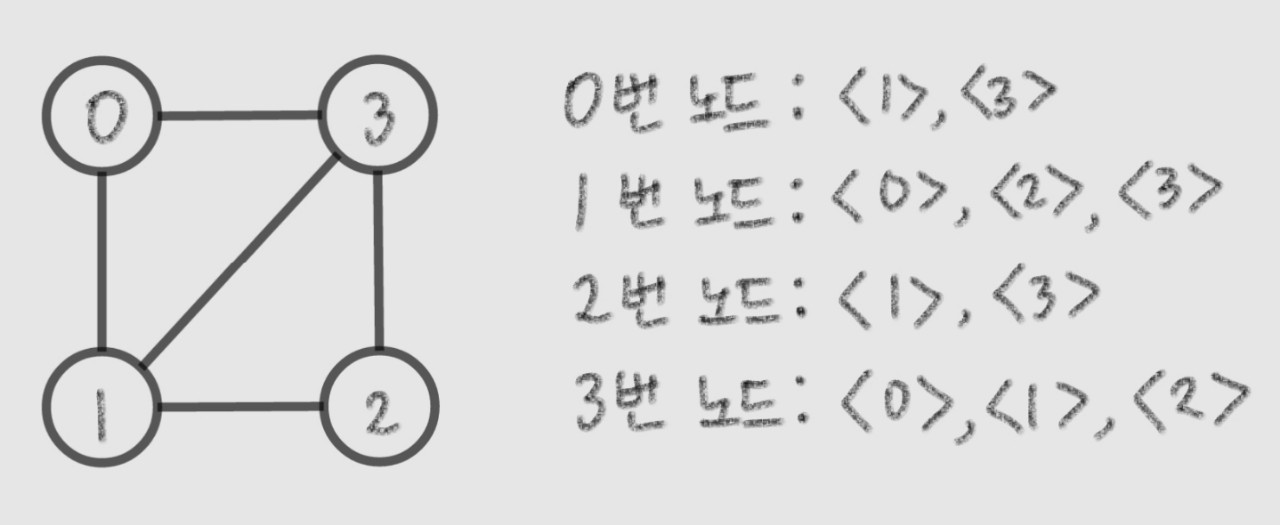 0 3
1 2
0번 노드 : <1>, <3>
1번 노드 : <0>, <2>, <3>
2번 노드 : <1>, <3>
3번 노드 : <0>, <1>, <2>